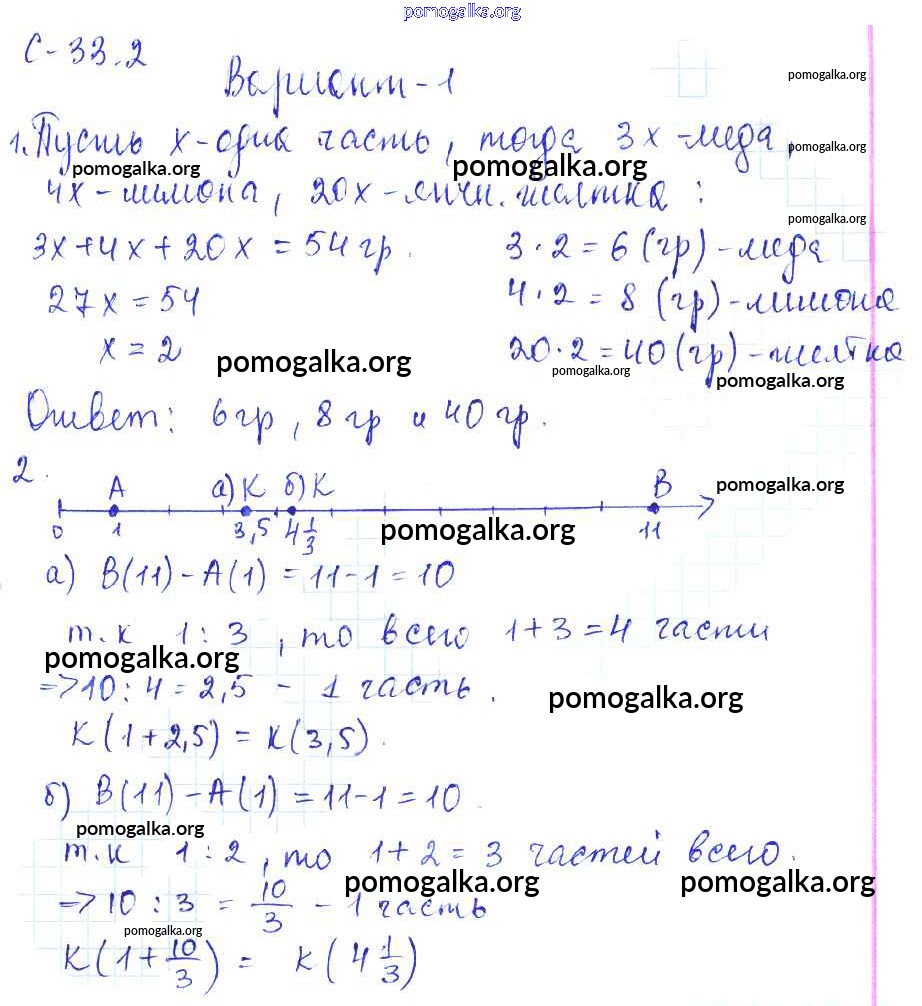 pomogalka.org
С-33.2
Вариант-1
pomogalka.org
1. Пусть х-одна часть, тогда 3х-меда,
pomogalka.org
pomogalka.org pomogalka.org
4х-лимона, 20х-яичн. желтка:
pomogalka.org
3х+4х+20х=54гр. 3·2=6(гр)-меда
27х=54 4·2=8(гр)-лимона
х=2 20·2=40(гр)-желтка
pomogalka.org pomogalka.org pomogalka.org
Ответ: 6гр, 8гр и 40гр.
2.
A а)К б)К B
pomogalka.org
0 1 3,5 4 1/3 11
pomogalka.org
а) B(11)-A(1)=11-1=10
т.к 1:3, то всего 1+3=4 части
pomogalka.org
=>10:4=2,5 - 1 часть.
pomogalka.org
К(1+2,5)=К(3,5).
б) B(11)-A(1)=11-1=10.
pomogalka.org
т.к 1:2, то 1+2=3 частей всего.
pomogalka.org pomogalka.org
=>10:3=10/3 - 1 часть
pomogalka.org
К(1+10/3) = К(4 1/3)